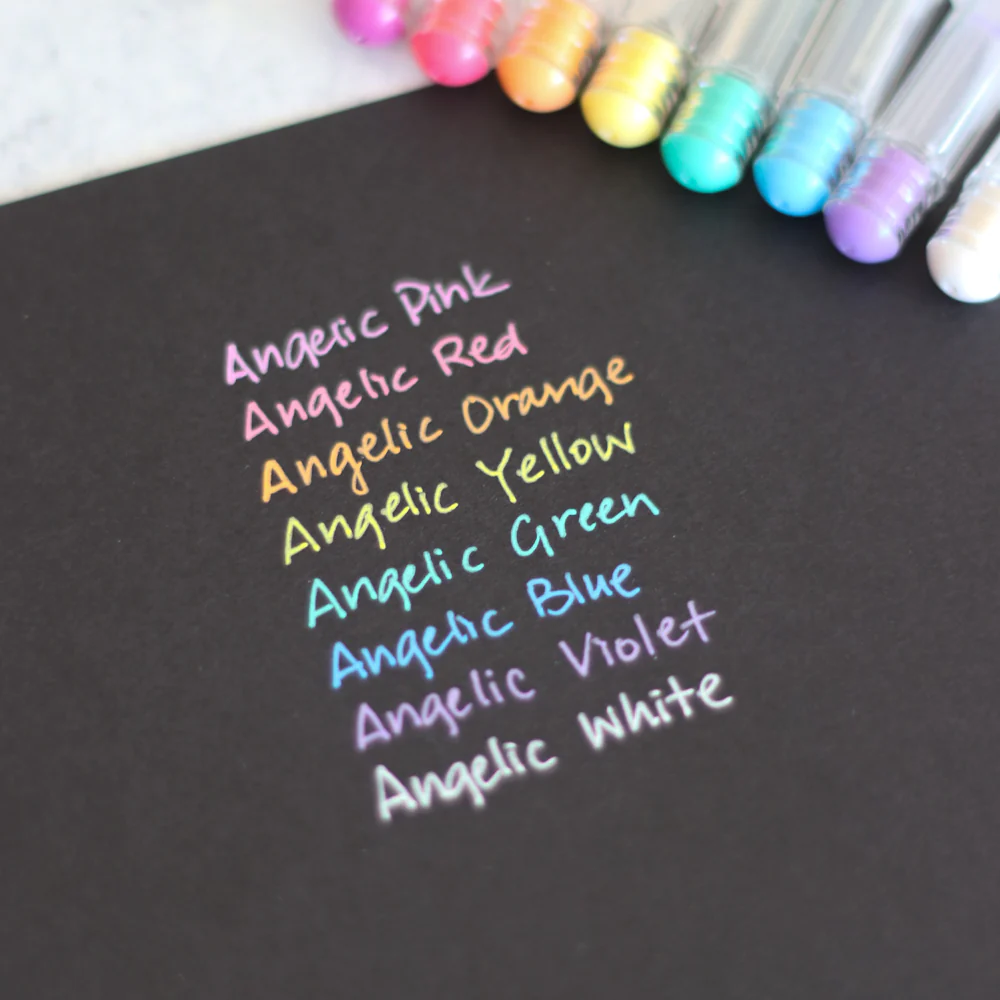 Angelic Pink
Angelic Red
Angelic Orange
Angelic Yellow
Angelic Green
Angelic Blue
Angelic Violet
Angelic White